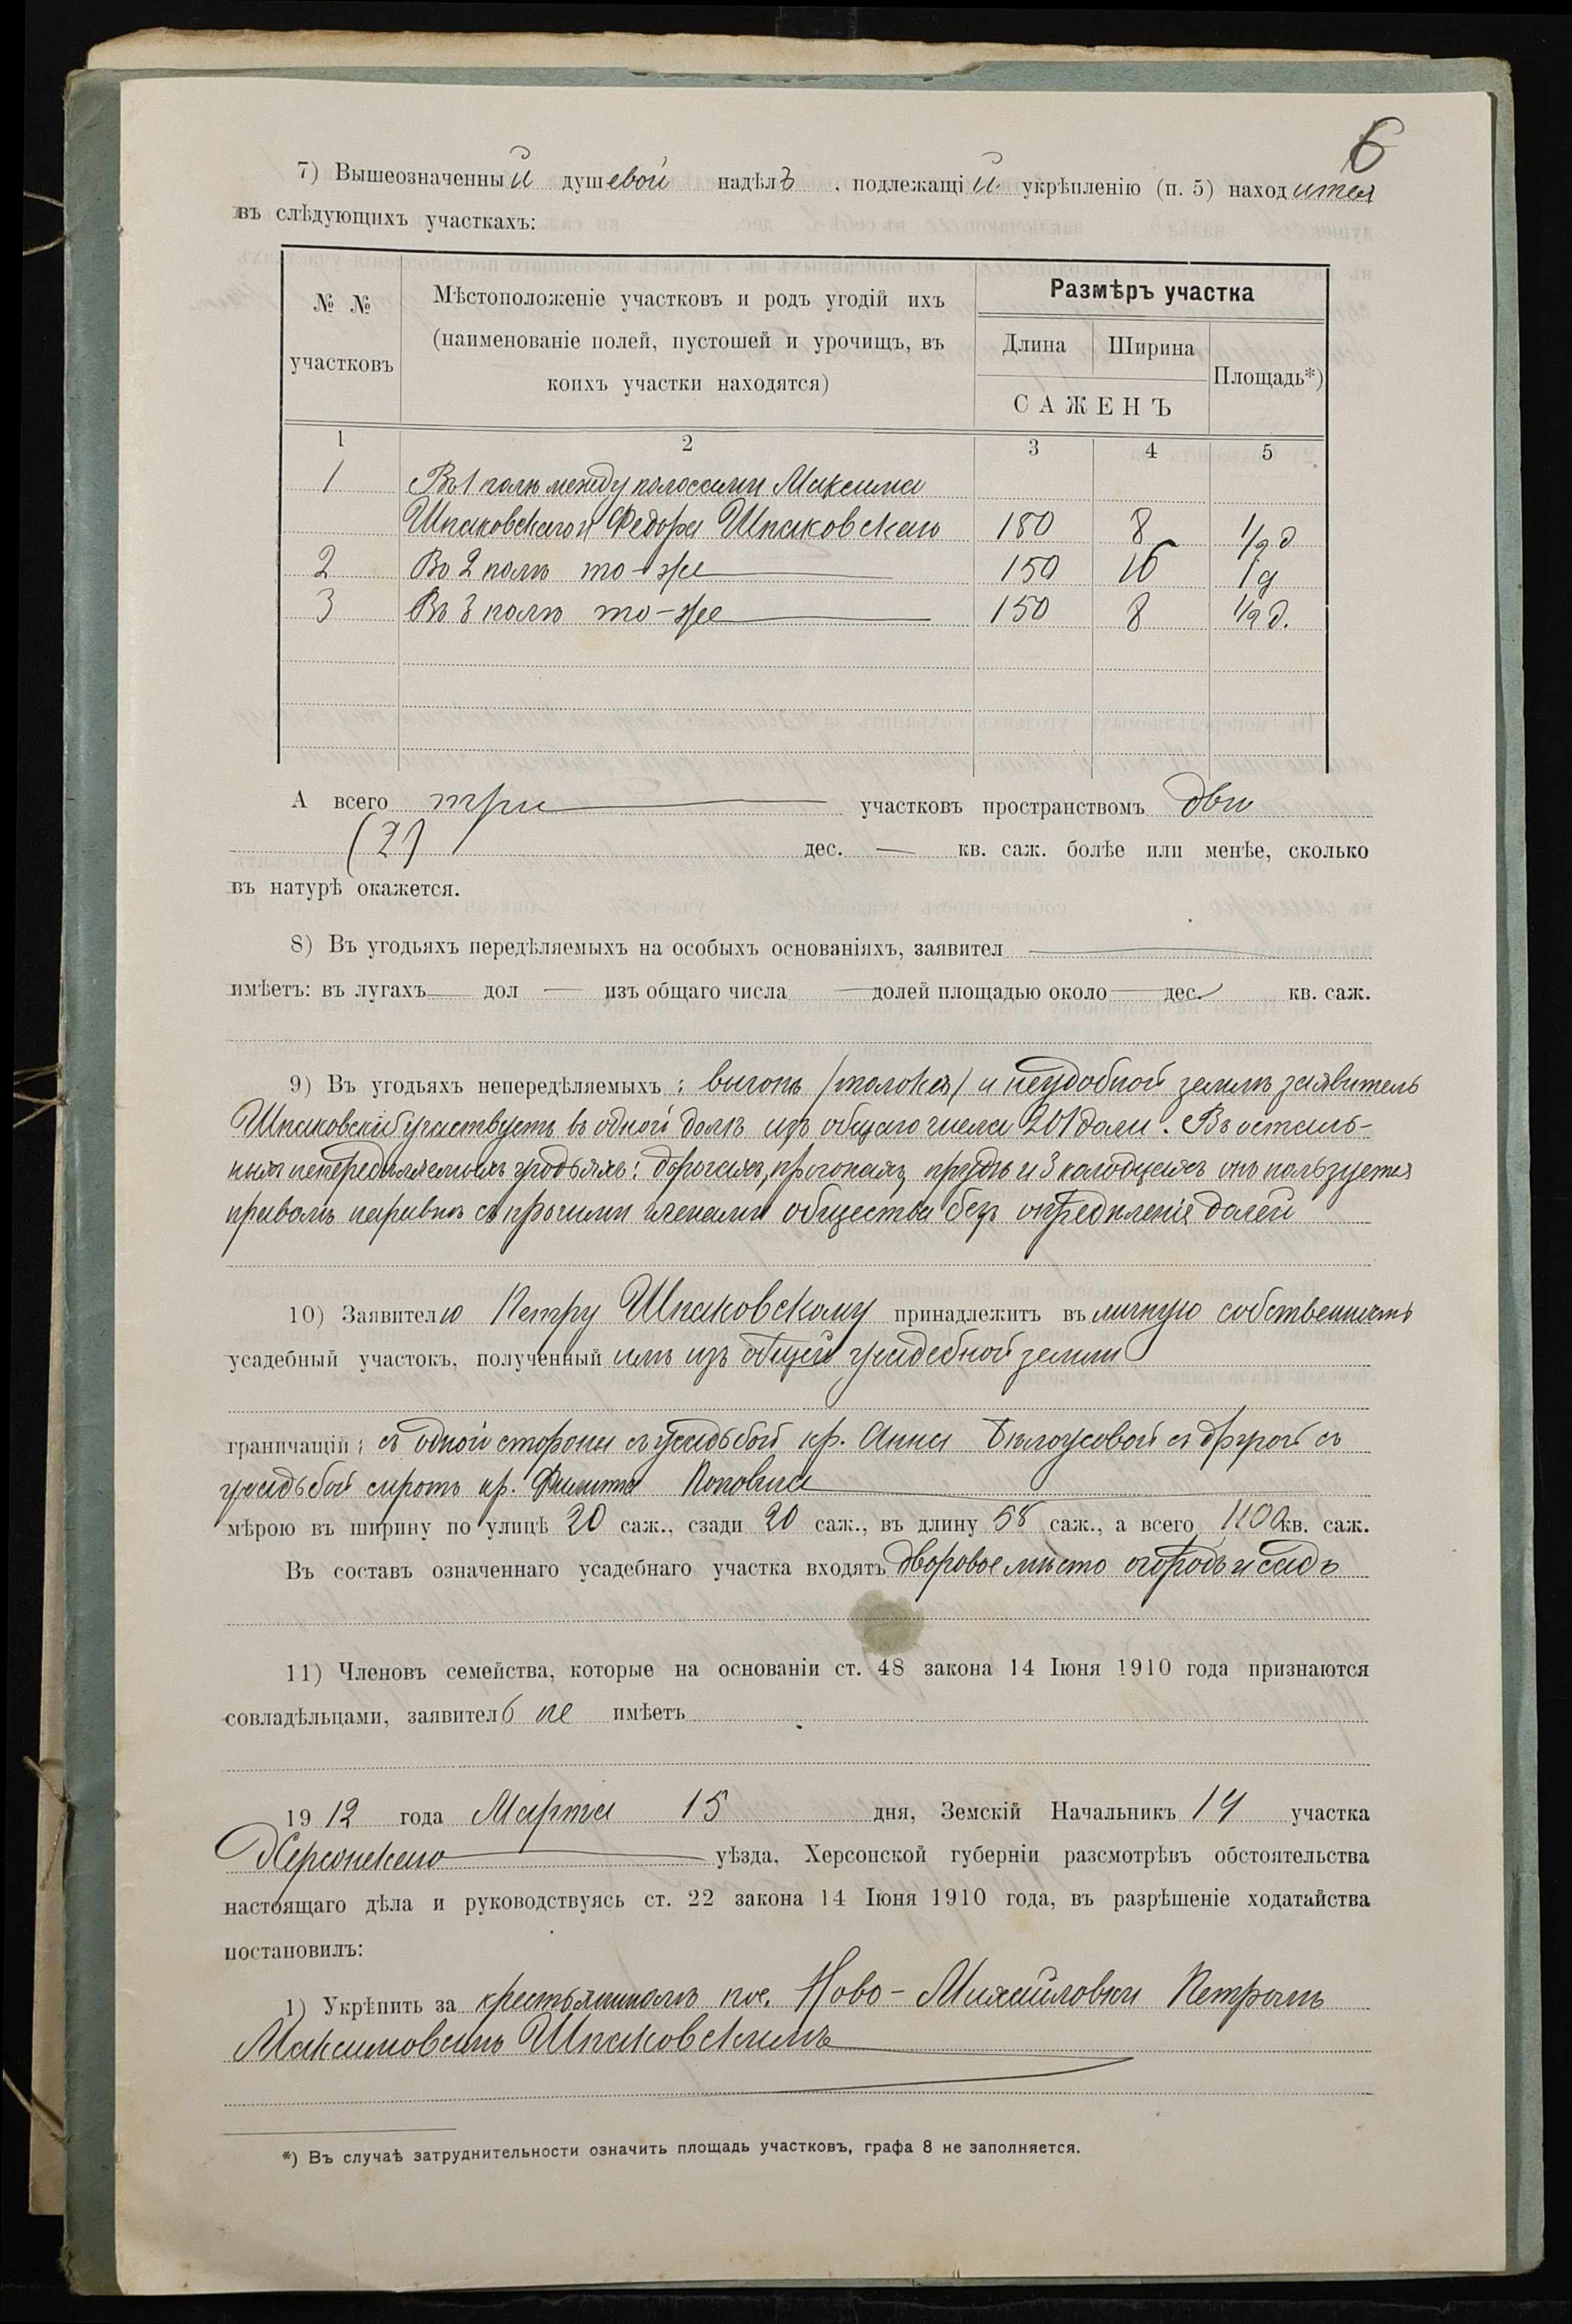 6
7) Вышеозначенный душевой надѣлъ, подлежащій укрѣпленію (п. 5) находится
въ слѣдующихъ участкахъ:
№ № участковъ
Мѣстоположеніе участковъ и родъ угодій ихъ
(наименованіе полей, пустошей и урочищъ, въ
коихъ участки находятся)
Размѣръ участка
Длина Ширина Площадь*)
САЖЕНЪ
1 2 3 4 5
1 Въ 1 полѣ между полосами Максима
Шпаковскаго и Федора Шпаковскаго 150 8 1/2 д
2 Во 2 полѣ то-же 150 16 1 д
3 Въ 3 полѣ то-же 150 8 1/2 д.
А всего три участковъ пространствомъ двѣ
(2) дес. — кв. саж. болѣе или менѣе, сколько
въ натурѣ окажется.
8) Въ угодьяхъ передѣляемыхъ на особыхъ основаніяхъ, заявител —
имѣетъ: въ лугахъ — дол — изъ общаго числа — долей площадью около — дес. кв. саж.
9) Въ угодьяхъ непередѣляемыхъ: выгонѣ (толокѣ) и неудобной землѣ заявитель
Шпаковскій участвуетъ въ одной долѣ изъ общаго числа 201 доли. Въ осталь-
ныхъ непередѣляемыхъ угодьяхъ: дорогахъ, прогонахъ, прудѣ и 3 колодцахъ онъ пользуется
правомъ наравнѣ съ прочими членами общества безъ опредѣленія долей
10) Заявителю Петру Шпаковскому принадлежитъ въ личную собственность
усадебный участокъ, полученный имъ изъ общей усадебной земли
граничащій: съ одной стороны съ усадьбой кр. Анны Бѣлоусовой съ другой съ
усадьбой сиротъ кр. Филиппа Поповича
мѣрою въ ширину по улицѣ 20 саж., сзади 20 саж., въ длину 58 саж., а всего кв. саж.
Въ составъ означеннаго усадебнаго участка входятъ дворовое мѣсто огородъ и садъ
11) Членовъ семейства, которые на основаніи ст. 48 закона 14 Іюня 1910 года признаются
совладѣльцами, заявитель не имѣетъ
1912 года Марта 15 дня, Земскій Начальникъ 14 участка
Херсонскаго уѣзда, Херсонской губерніи разсмотрѣвъ обстоятельства
настоящаго дѣла и руководствуясь ст. 22 закона 14 Іюня 1910 года, въ разрѣшеніе ходатайства
постановилъ:
1) Укрѣпить за крестьяниномъ пос. Ново-Михайловки Петромъ
Максимовымъ Шпаковскимъ
*) Въ случаѣ затруднительности означить площадь участковъ, графа 8 не заполняется.